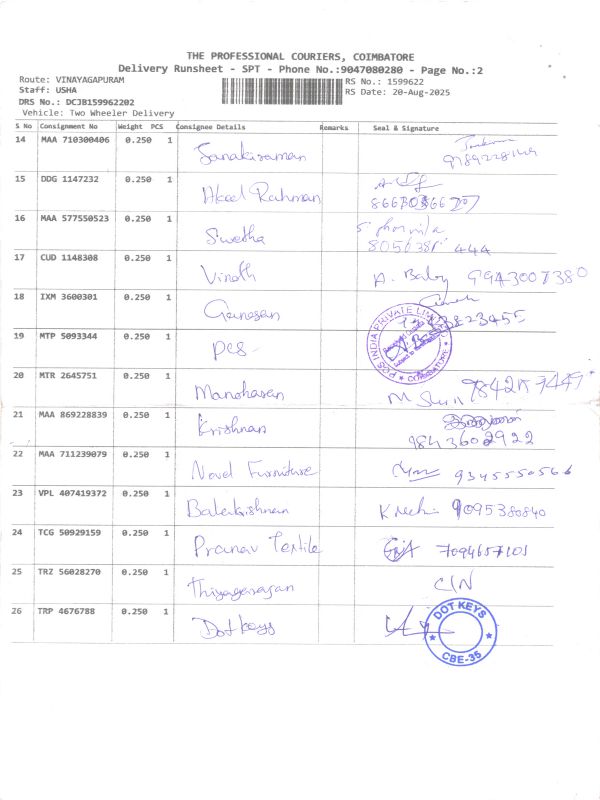 THE PROFESSIONAL COURIERS, COIMBATORE
Delivery Runsheet - SPT - Phone No.:9047080280 - Page No.:2
Route: VINAYAGAPURAM
Staff: USHA
DRS No.: DCJB159962202
Vehicle: Two Wheeler Delivery
RS No.: 1599622
RS Date: 20-Aug-2025
S No Consignment No Weight PCS Consignee Details Remarks Seal & Signature
14 MAA 710300406 0.250 1 Janakiraman
15 DDG 1147232 0.250 1 Akeel Rahman
16 MAA 577550523 0.250 1 Swetha
17 CUD 1148308 0.250 1 Vinoth A. Baby 9943007380
18 IXM 3600301 0.250 1 Ganesan
19 MTP 5093344 0.250 1 PCS
PCS INDIA PRIVATE LIMITED COIMBATORE
20 MTR 2645751 0.250 1 Manoharan
21 MAA 869228839 0.250 1 Krishnan 9843602922
22 MAA 711239079 0.250 1 Novel Furniture 9345550566
23 VPL 407419372 0.250 1 Balakrishnan 9095380840
24 TCG 50929159 0.250 1 Pranav Textile 7094657101
25 TRZ 56028270 0.250 1 Thiyagarajan
26 TRP 4676788 0.250 1 Dot keys
DOT KEYS
CBE-35